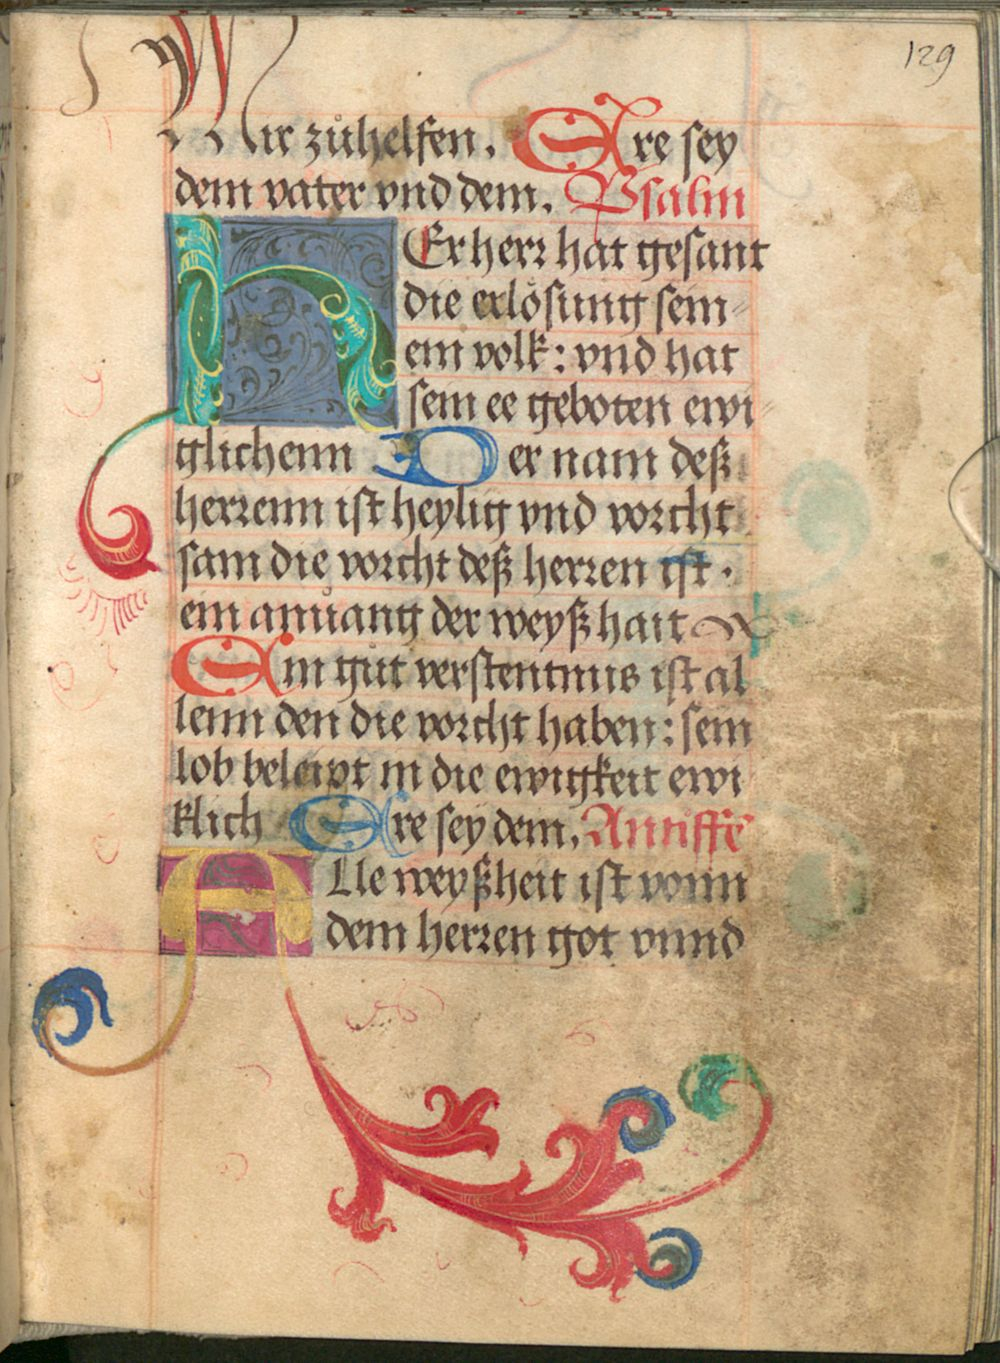 129
Mir zůhelfen. Ere sey
dem vater vnd dem. Psalm
Er herr hat gesant
die erlösung sein-
em volk: vnd hat
sein ee geboten ewi-
glichenn Der nam deß
herrenn ist heylig vnd vorcht
sam die vorcht deß herren ist.
ein anuang der weyßhait
Ain gůt verstentnus ist al
lenn den die vorcht haben: sein
lob beleipt in die ewigkeit ewi
klich Ere sey dem. Antiffē
Alle weyßheit ist vonn
dem herren got vnnd